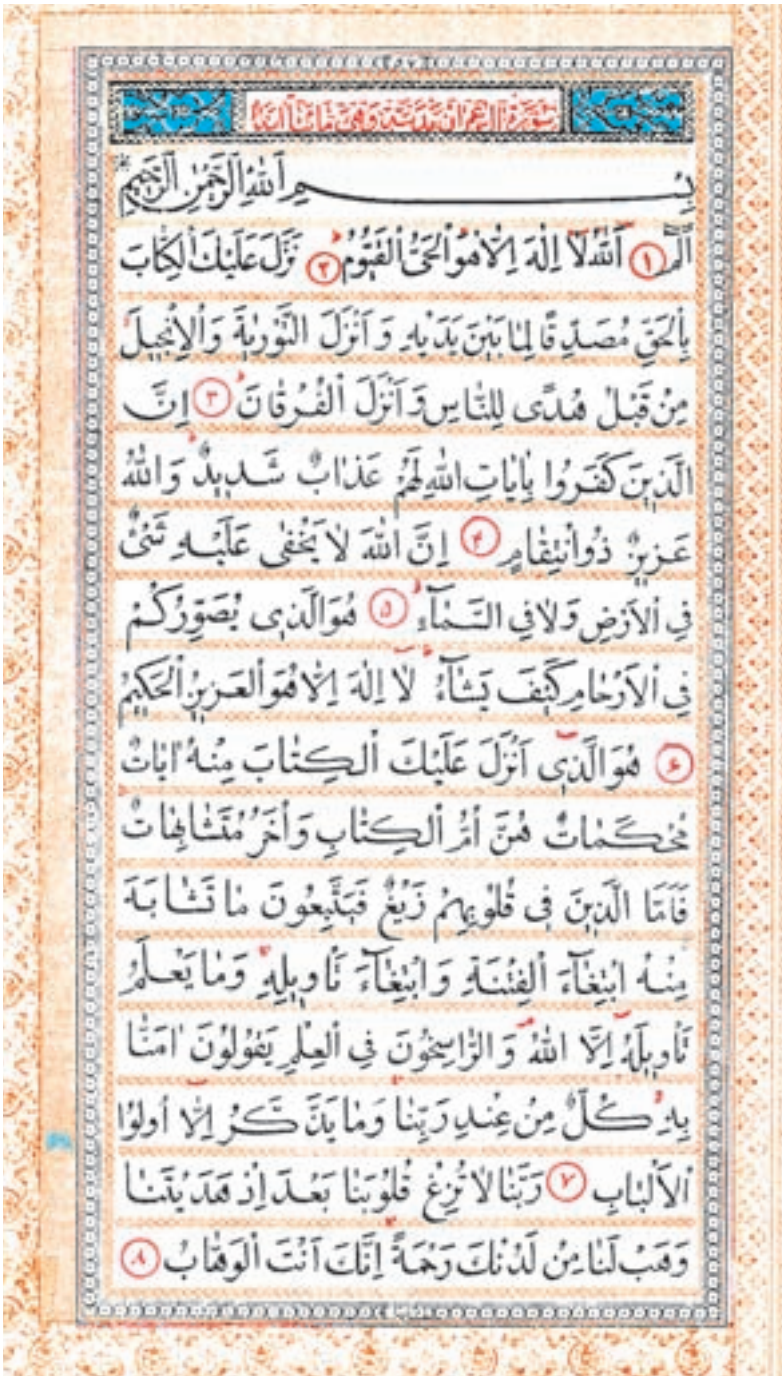 سورة آل عمران مدنية وهي مائتا آية
بِسْمِ اللهِ الرَّحْمٰنِ الرَّحِيمِ
الٓمٓ ۱ اَللهُ لَآ اِلٰهَ اِلَّا هُوَ الْحَيُّ الْقَيُّومُ ۲ نَزَّلَ عَلَيْكَ الْكِتَابَ
بِالْحَقِّ مُصَدِّقًا لِمَا بَيْنَ يَدَيْهِ وَ اَنْزَلَ التَّوْرٰيةَ وَالْاِنْجِيلَ
مِنْ قَبْلُ هُدًى لِلنَّاسِ وَ اَنْزَلَ الْفُرْقَانَ ۳ اِنَّ
الَّذِينَ كَفَرُوا بِاٰيَاتِ اللهِ لَهُمْ عَذَابٌ شَدِيدٌ وَاللهُ
عَزِيزٌ ذُو انْتِقَامٍ ۴ اِنَّ اللهَ لَا يَخْفٰى عَلَيْهِ شَىْءٌ
فِي الْاَرْضِ وَلَا فِي السَّمَآءِ ۵ هُوَ الَّذِى يُصَوِّرُكُمْ
فِي الْاَرْحَامِ كَيْفَ يَشَآءُ لَآ اِلٰهَ اِلَّا هُوَ الْعَزِيزُ الْحَكِيمُ
۶ هُوَ الَّذِىٓ اَنْزَلَ عَلَيْكَ الْكِتَابَ مِنْهُ اٰيَاتٌ
مُحْكَمَاتٌ هُنَّ اُمُّ الْكِتَابِ وَ اُخَرُ مُتَشَابِهَاتٌ
فَاَمَّا الَّذِينَ فِى قُلُوبِهِمْ زَيْغٌ فَيَتَّبِعُونَ مَا تَشَابَهَ
مِنْهُ ابْتِغَآءَ الْفِتْنَةِ وَ ابْتِغَآءَ تَاْوِيلِهِ وَمَا يَعْلَمُ
تَاْوِيلَهُٓ اِلَّا اللهُ وَ الرَّاسِخُونَ فِي الْعِلْمِ يَقُولُونَ اٰمَنَّا
بِهِ كُلٌّ مِنْ عِنْدِ رَبِّنَا وَمَا يَذَّكَّرُ اِلَّآ اُولُوا
الْاَلْبَابِ ۷ رَبَّنَا لَا تُزِغْ قُلُوبَنَا بَعْدَ اِذْ هَدَيْتَنَا
وَهَبْ لَنَا مِنْ لَدُنْكَ رَحْمَةً اِنَّكَ اَنْتَ الْوَهَّابُ ۸